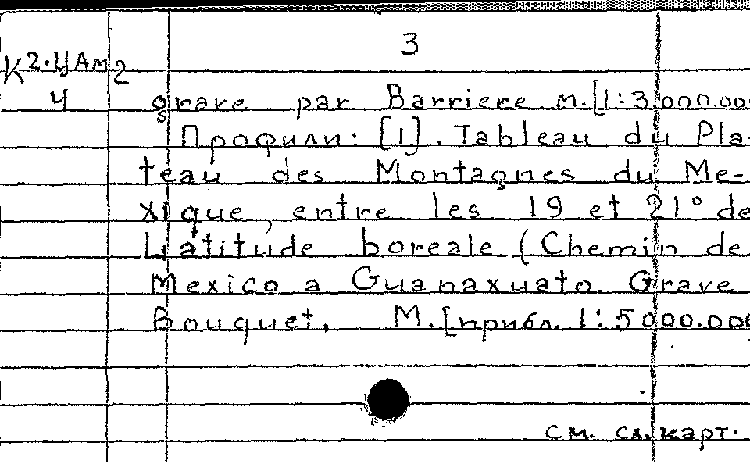 3
К2.ЦАм2
4
grave par Barriere м.[1:3.000.00
Профили: [1]. Tableau du Pla-
teau des Montagnes du Me-
xique, entre les 19 et 21° de
Latitude boreale (Chemin de
Mexico a Guanaxuato. Grave
Bouquet. М.[прибл. 1:5000.000
см. сл. карт.